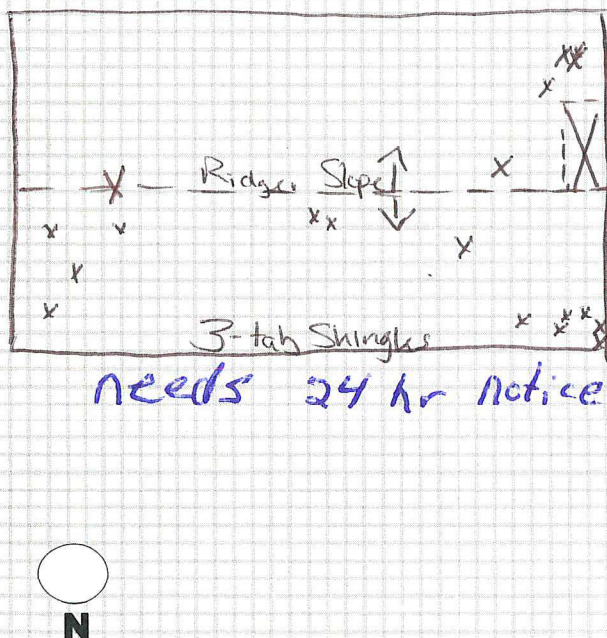 Ridge Slope
3-tab Shingles
needs 24 hr notice
N